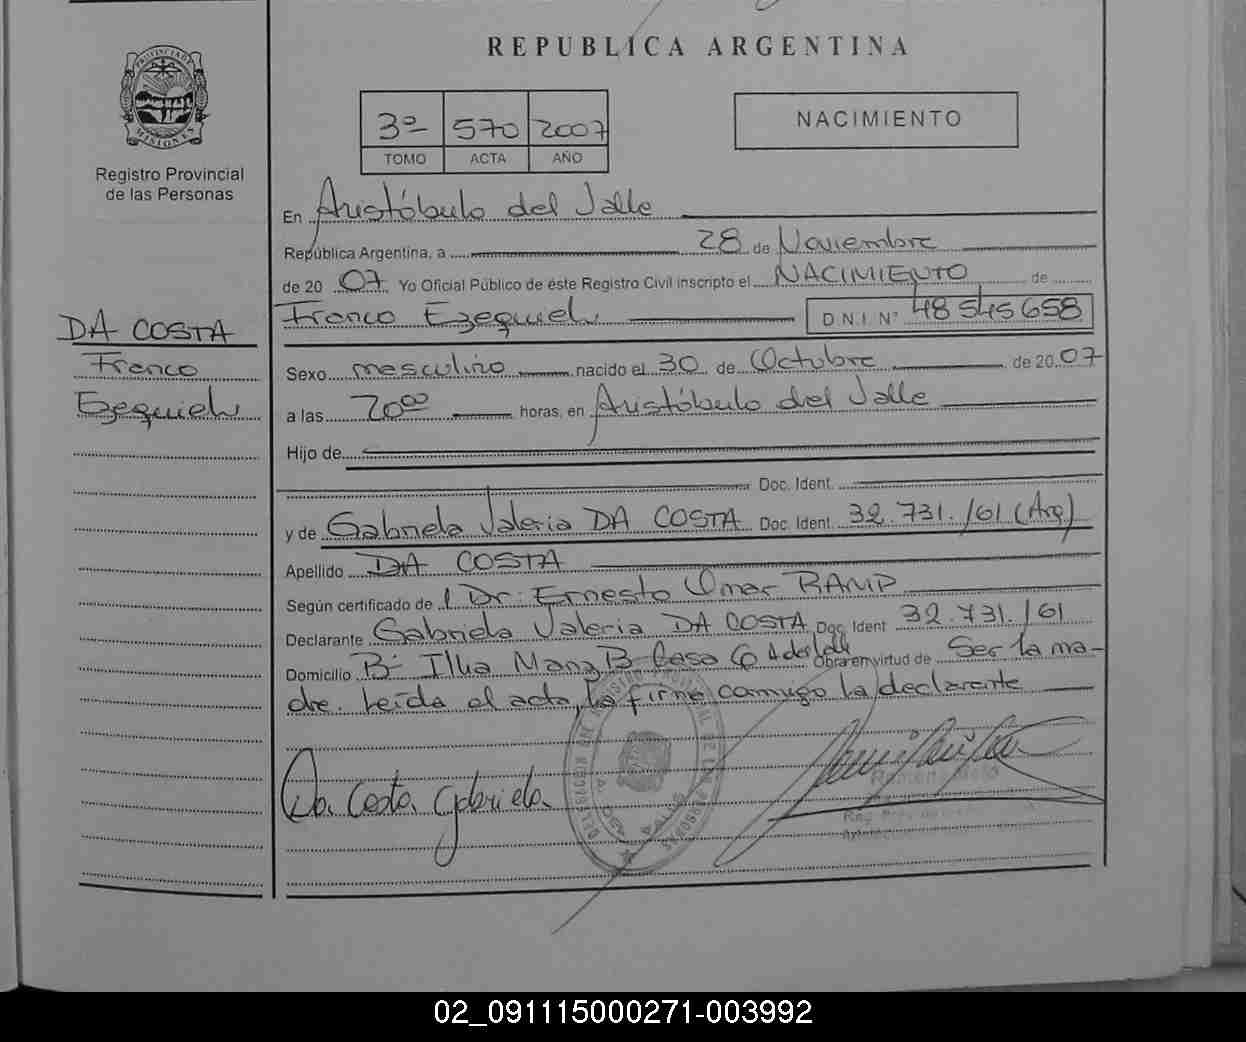 REPUBLICA ARGENTINA
PROVINCIA DE MISIONES
Registro Provincial
de las Personas
3º 570 2007
TOMO ACTA AÑO
NACIMIENTO
En Aristóbulo del Valle
República Argentina, a 28 de Noviembre
de 20 07 Yo Oficial Público de éste Registro Civil inscripto el NACIMIENTO de
Franco Ezequiel D.N.I. Nº 48545658
DA COSTA
Franco
Ezequiel
Sexo masculino nacido el 30 de Octubre de 20 07
a las 20 00 horas, en Aristóbulo del Valle
Hijo de
Doc. Ident.
y de Gabriela Valeria DA COSTA Doc. Ident. 32.731.161 (Arg)
Apellido DA COSTA
Según certificado de Dr. Ernesto Omar RAMP
Declarante Gabriela Valeria DA COSTA Doc. Ident 32.731.161
Domicilio Bº Illia Manz B Casa Obra en virtud de Ser la ma-
dre. Leída el acta, la firma conmigo la declarante
Da Costa Gabriela
02_091115000271-003992